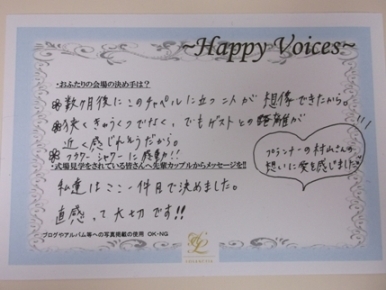 ~Happy Voices~
・おふたりの会場の決め手は?
❀数ヶ月後にこのチャペルに立つ二人が想像できたから。
❀狭くきゅうくつでなく、でもゲストとの距離が
近く感じれそうだから。
❀フラワーシャワーに感動!!
プランナーの村山さんの
想いに愛を感じました!!!
・式場見学をされている皆さんへ先輩カップルからメッセージを!!
私達はここ一件目で決めました。
直感って大切です!!
ブログやアルバム等への写真掲載の使用 OK・NG